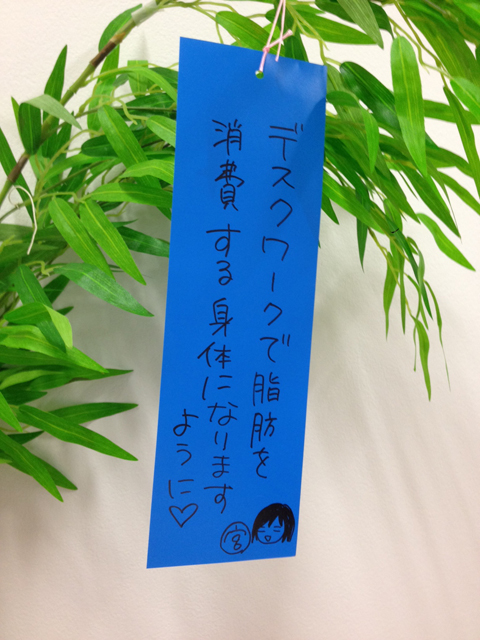 デスクワークで脂肪を
消費する身体になります
ように♡
宮